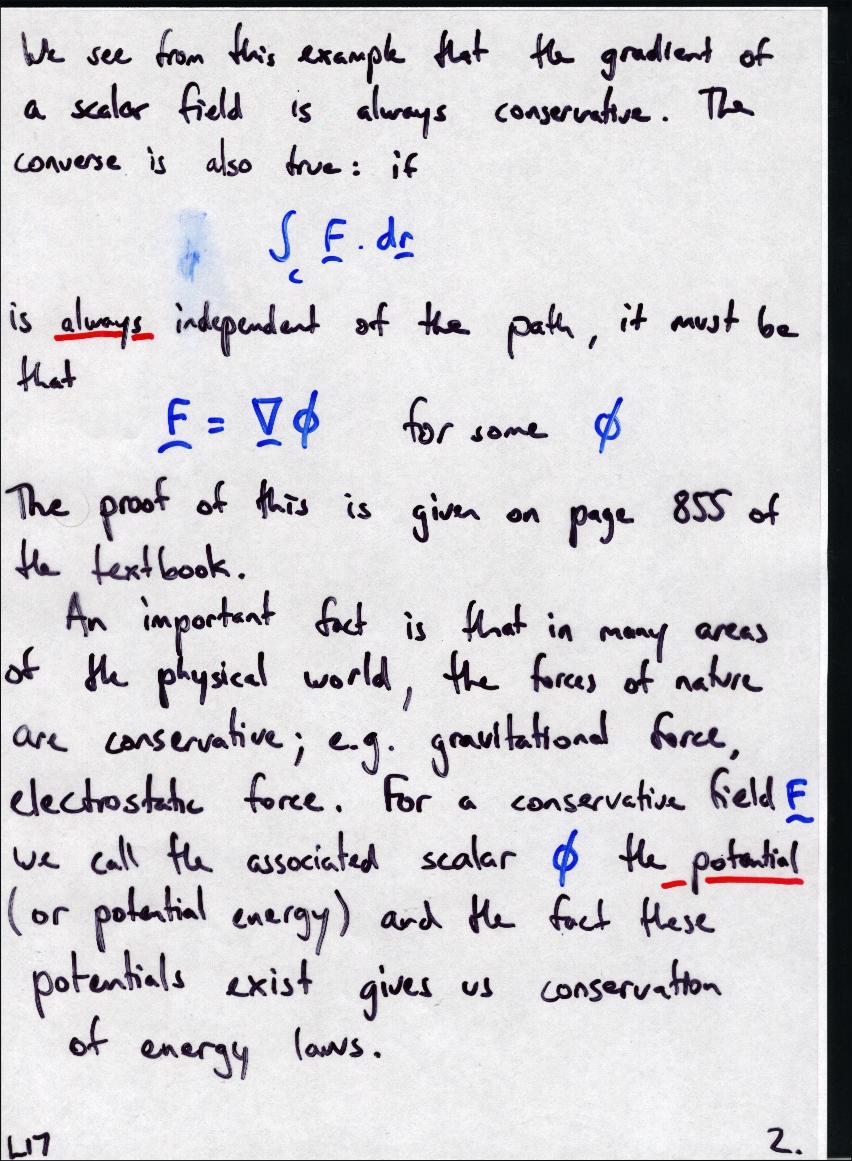 We see from this example that the gradient of
a scalar field is always conservative. The
converse is also true: if
∫_c F . dr
is always independent of the path, it must be
that
F = ∇φ for some φ
The proof of this is given on page 855 of
the textbook.
An important fact is that in many areas
of the physical world, the forces of nature
are conservative; e.g. gravitational force,
electrostatic force. For a conservative field F
we call the associated scalar φ the potential
(or potential energy) and the fact these
potentials exist gives us conservation
of energy laws.
L17 2.